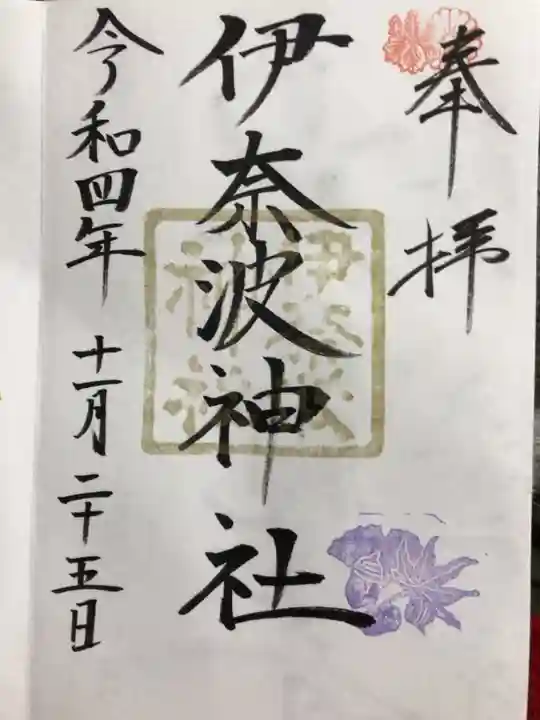 奉拝
伊奈波神社
伊奈波
神社
令和四年 十一月 二十五日